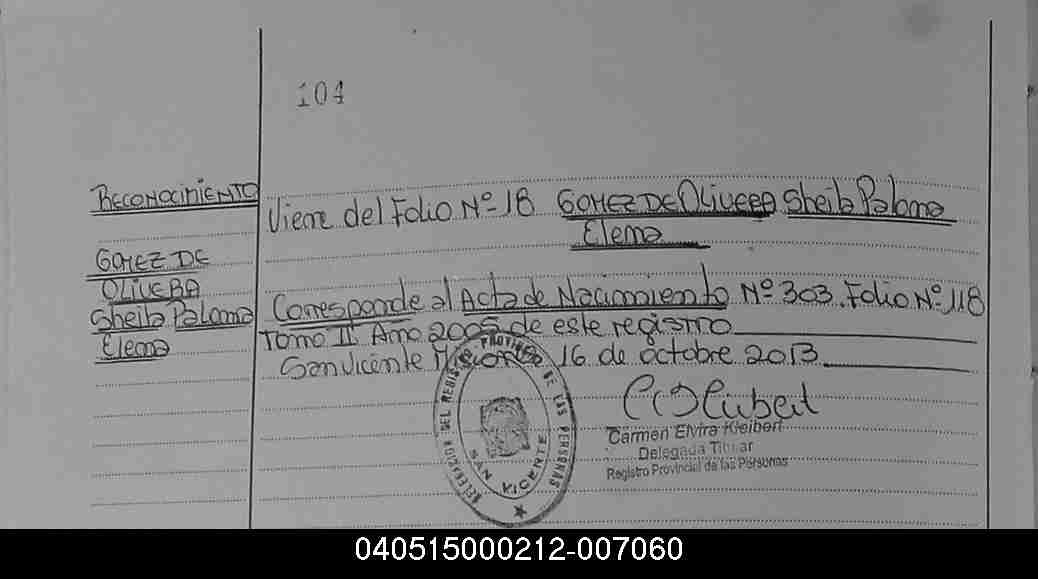 104
RECONOCIMIENTO
GOMEZ DE
OLIVERA
Sheila Paloma
Elena
Viene del Folio Nº 18 GOMEZ DE OLIVERA Sheila Paloma
Elena
Corresponde al Acta de Nacimiento Nº 303. Folio Nº 118
Tomo II Año 2005 de este registro
San Vicente Misiones 16 de octubre 2013
Carmen Elvira Kleibert
Delegada Titular
Registro Provincial de las Personas
DELEGACION DEL REGISTRO PROVINCIAL DE LAS PERSONAS
SAN VICENTE
040515000212-007060